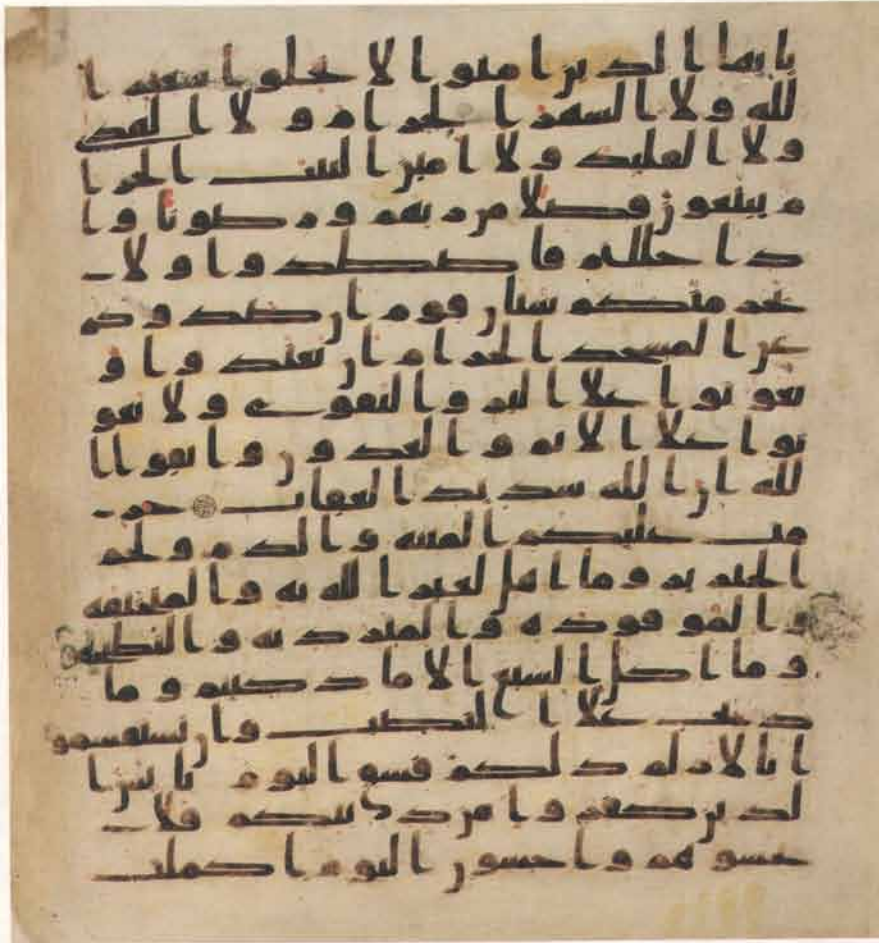 يايها الذين امنوا لا تحلوا شعئر ا
لله ولا الشهر الحرام ولا الهدى
ولا القلئد ولا امين البيت الحرا
م يبتغون فضلا من ربهم ورضونا وا
ذا حللتم فاصطدوا ولا
يجرمنكم شنان قوم ان صدوكم
عن المسجد الحرام ان تعتدوا و
تعونوا علا البر والتقوى ولا تعو
نوا علا الاثم والعدون واتقوا ا
لله ان الله شديد العقاب حر
مت عليكم الميتة والدم ولحم
الخنزير وما اهل لغير الله به والمنخنقة
والموقوذة والمتردية والنطيحة
وما اكل السبع الا ما ذكيتم وما
ذبح علا النصب وان تستقسمو
ا بالازلم ذلكم فسق اليوم يئس ا
لذين كفروا من دينكم فلا
تخشوهم واخشون اليوم اكملت